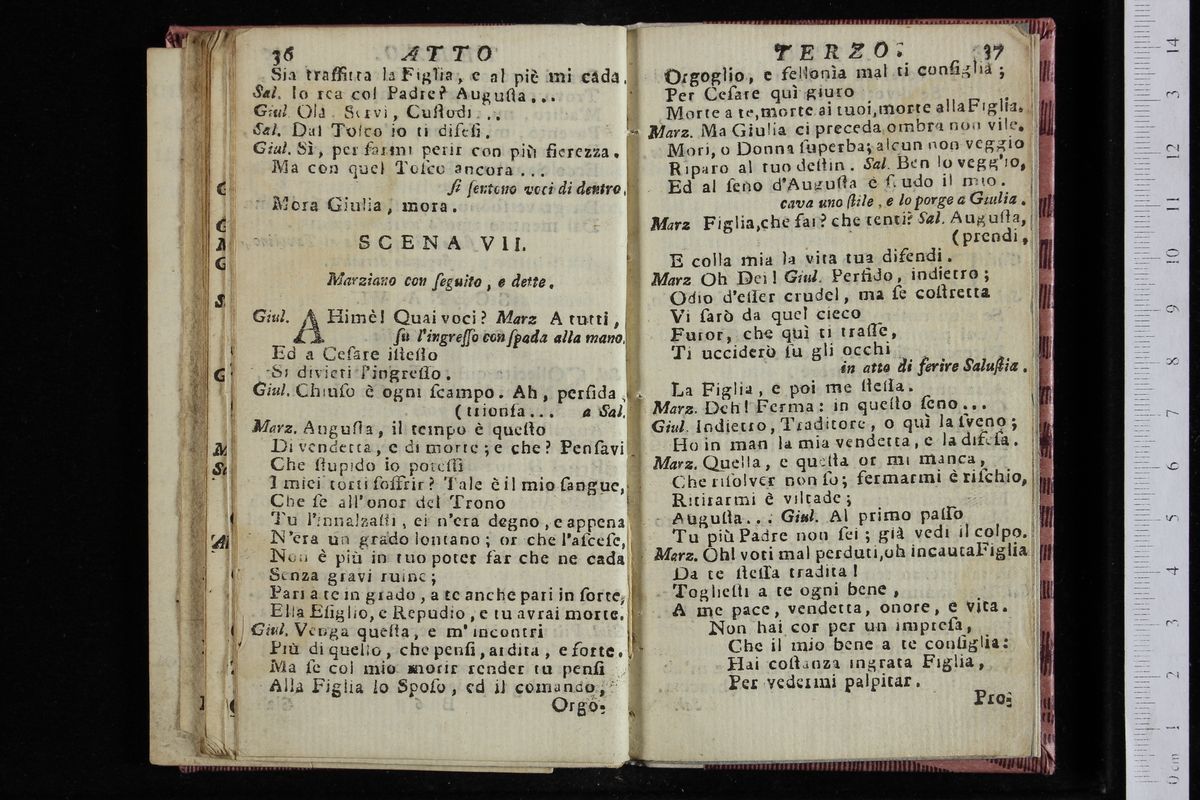 36 ATTO
Sia traffitta la Figlia, e al piè mi cada.
Sal. Io rea col Padre? Auguſta...
Giul. Olà. Servi, Cuſtodi...
Sal. Dal Toſco io ti difeſi.
Giul. Sì, per farmi perir con più fierezza.
Ma con quel Toſco ancora...
ſi ſentono voci di dentro.
Mora Giulia, mora.
SCENA VII.
Marziano con ſeguito, e dette.
Giul. AHimè! Quai voci? Marz A tutti,
ſu l'ingreſſo con ſpada alla mano.
Ed a Ceſare iſteſſo
Si divieti l'ingreſſo.
Giul. Chiuſo è ogni ſcampo. Ah, perfida,
(trionfa... a Sal.
Marz. Auguſta, il tempo è queſto
Di vendetta, e di morte; e che? Penſavi
Che ſtupido io poteſſi
I miei torti ſoffrir? Tale è il mio ſangue,
Che ſe all'onor del Trono
Tu l'innalzaſti, ei n'era degno, e appena
N'era un grado lontano; or che l'aſceſe,
Non è più in tuo poter far che ne cada
Senza gravi ruine;
Pari a te in grado, a te anche pari in ſorte,
Ella Eſiglio, e Repudio, e tu avrai morte.
Giul. Venga queſta, e m'incontri
Più di quello, che penſi, ardita, e forte.
Ma ſe col mio morir render tu penſi
Alla Figlia lo Spoſo, ed il comando,
Orgo-
TERZO. 37
Orgoglio, e fellonìa mal ti conſiglia;
Per Ceſare quì giuro
Morte a te, morte ai tuoi, morte alla Figlia.
Marz. Ma Giulia ci preceda ombra non vile.
Mori, o Donna ſuperba; alcun non veggio
Riparo al tuo deſtin. Sal. Ben lo vegg'io,
Ed al ſeno d'Auguſta è ſcudo il mio.
cava uno ſtile, e lo porge a Giulia.
Marz Figlia, che fai? che tenti? Sal. Auguſta,
(prendi,
E colla mia la vita tua difendi.
Marz Oh Dei! Giul. Perfido, indietro;
Odio d'eſſer crudel, ma ſe coſtretta
Vi ſarò da quel cieco
Furor, che quì ti traſſe,
Ti ucciderò ſu gli occhi
in atto di ferire Saluſtia.
La Figlia, e poi me ſteſſa.
Marz. Deh! Ferma: in queſto ſeno...
Giul. Indietro, Traditore, o quì la ſveno;
Ho in man la mia vendetta, e la difeſa.
Marz. Quella, e queſta or mi manca,
Che riſolver non ſo; fermarmi è riſchio,
Ritirarmi è viltade;
Auguſta... Giul. Al primo paſſo
Tu più Padre non ſei; già vedi il colpo.
Marz. Oh! voti mal perduti, oh incauta Figlia
Da te ſteſſa tradita!
Toglieſti a te ogni bene,
A me pace, vendetta, onore, e vita.
Non hai cor per un impreſa,
Che il mio bene a te conſiglia:
Hai coſtanza ingrata Figlia,
Per vedermi palpitar.
Pro-